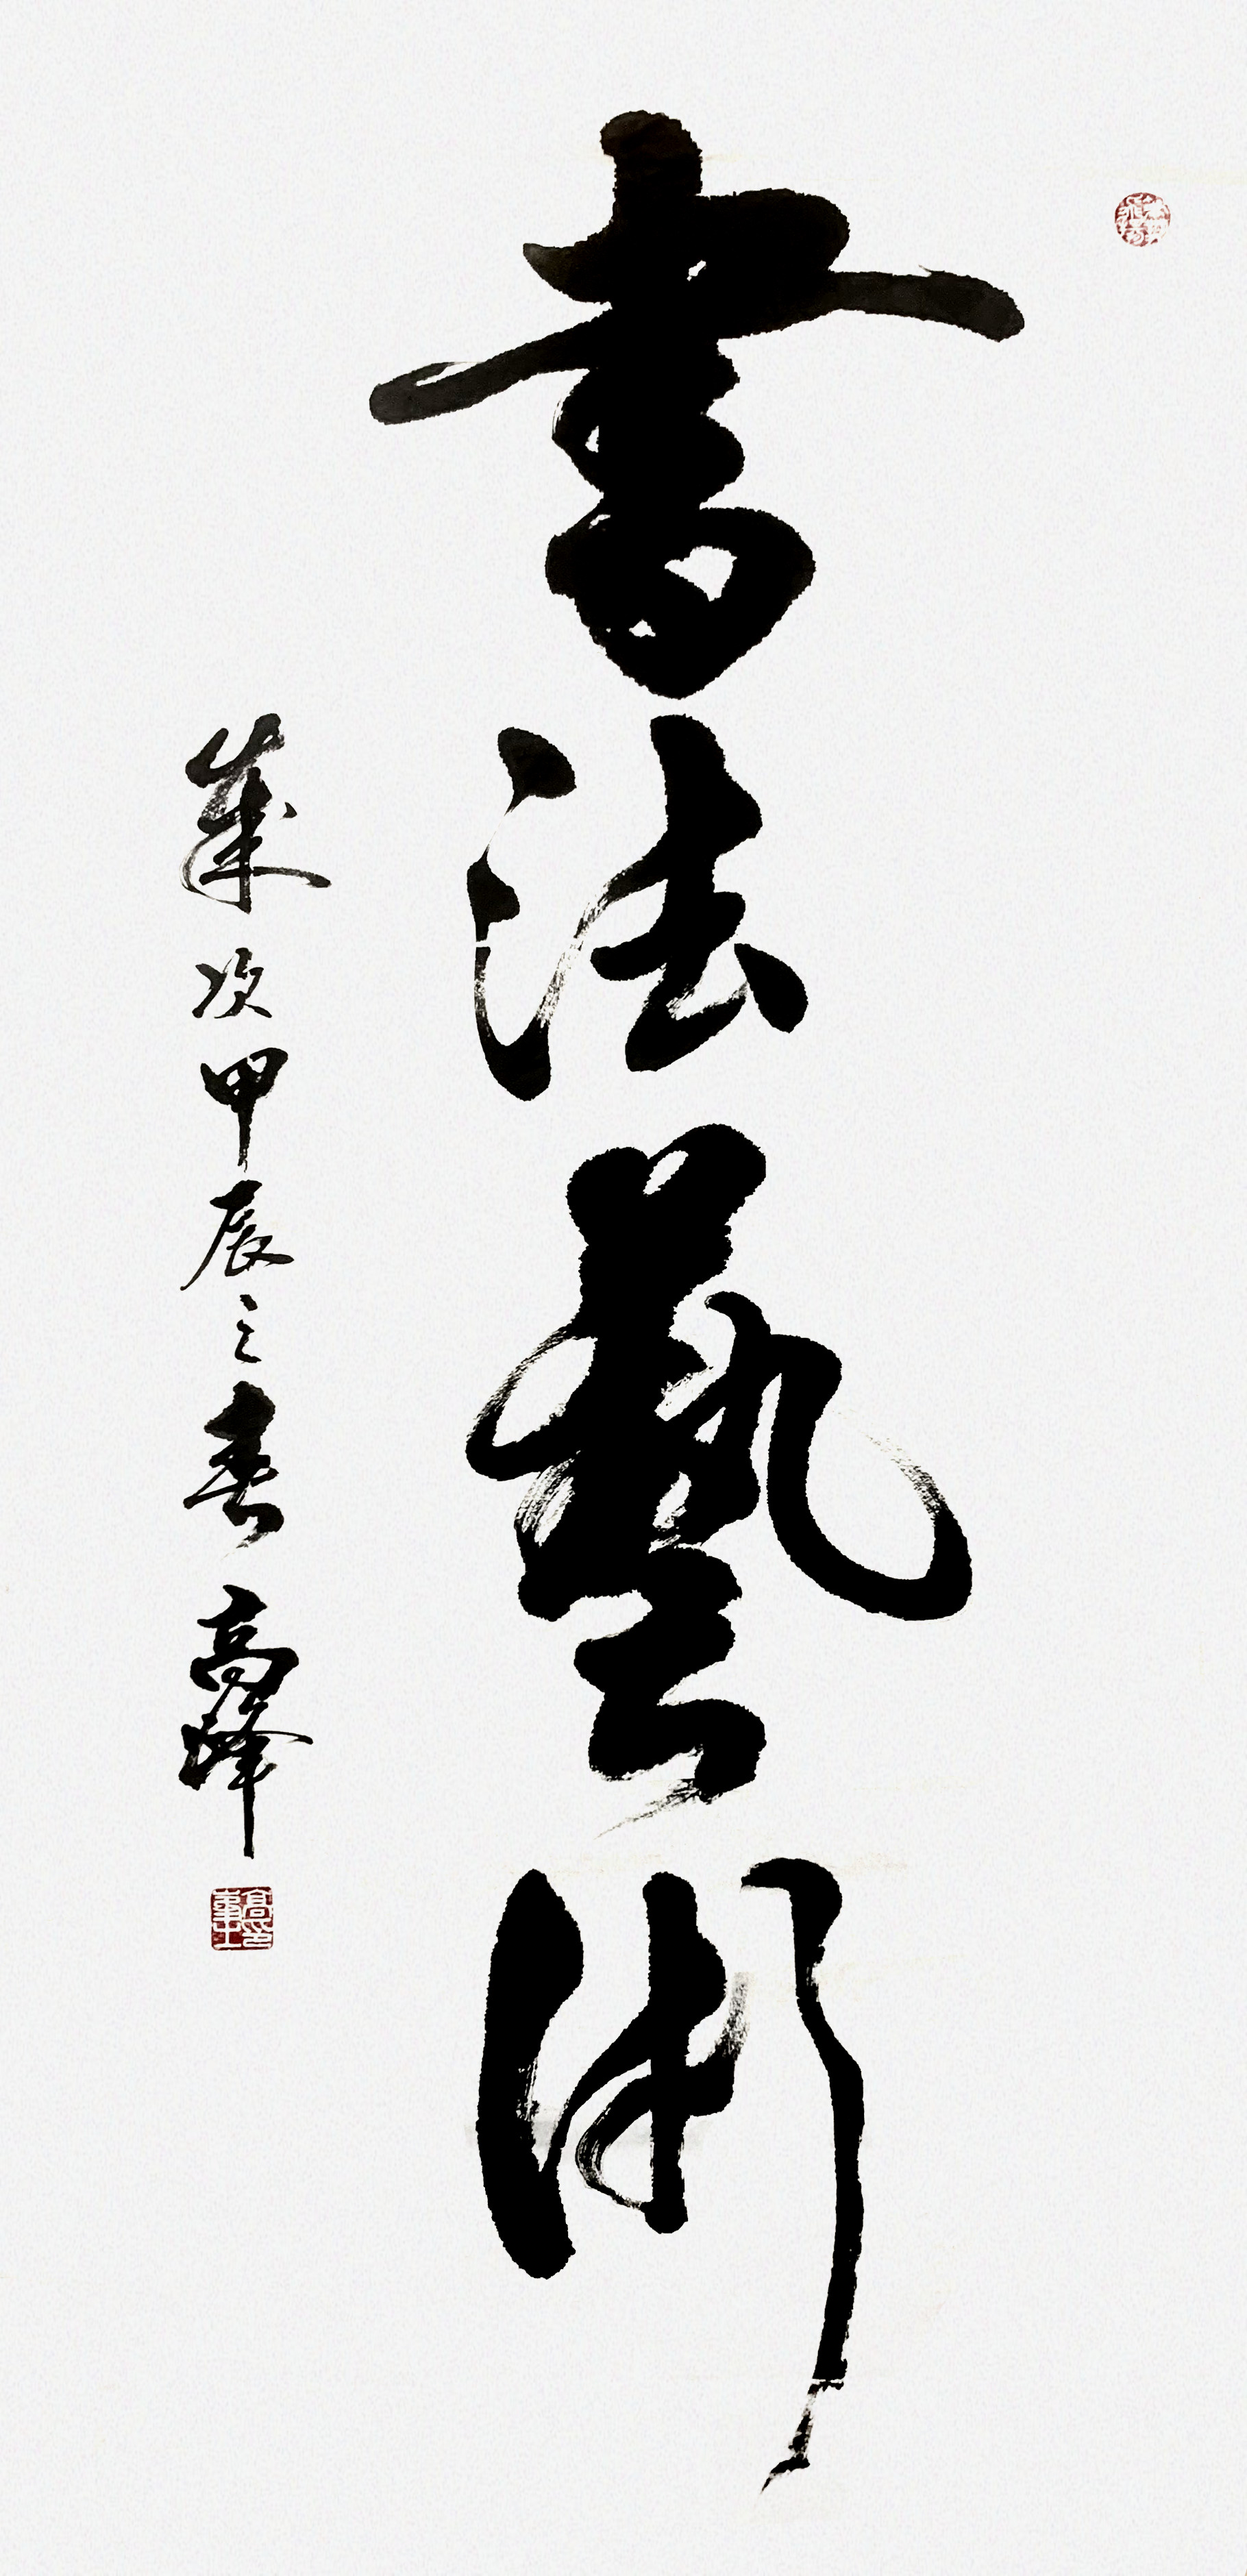 書法藝術
歲次甲辰之春 高峰